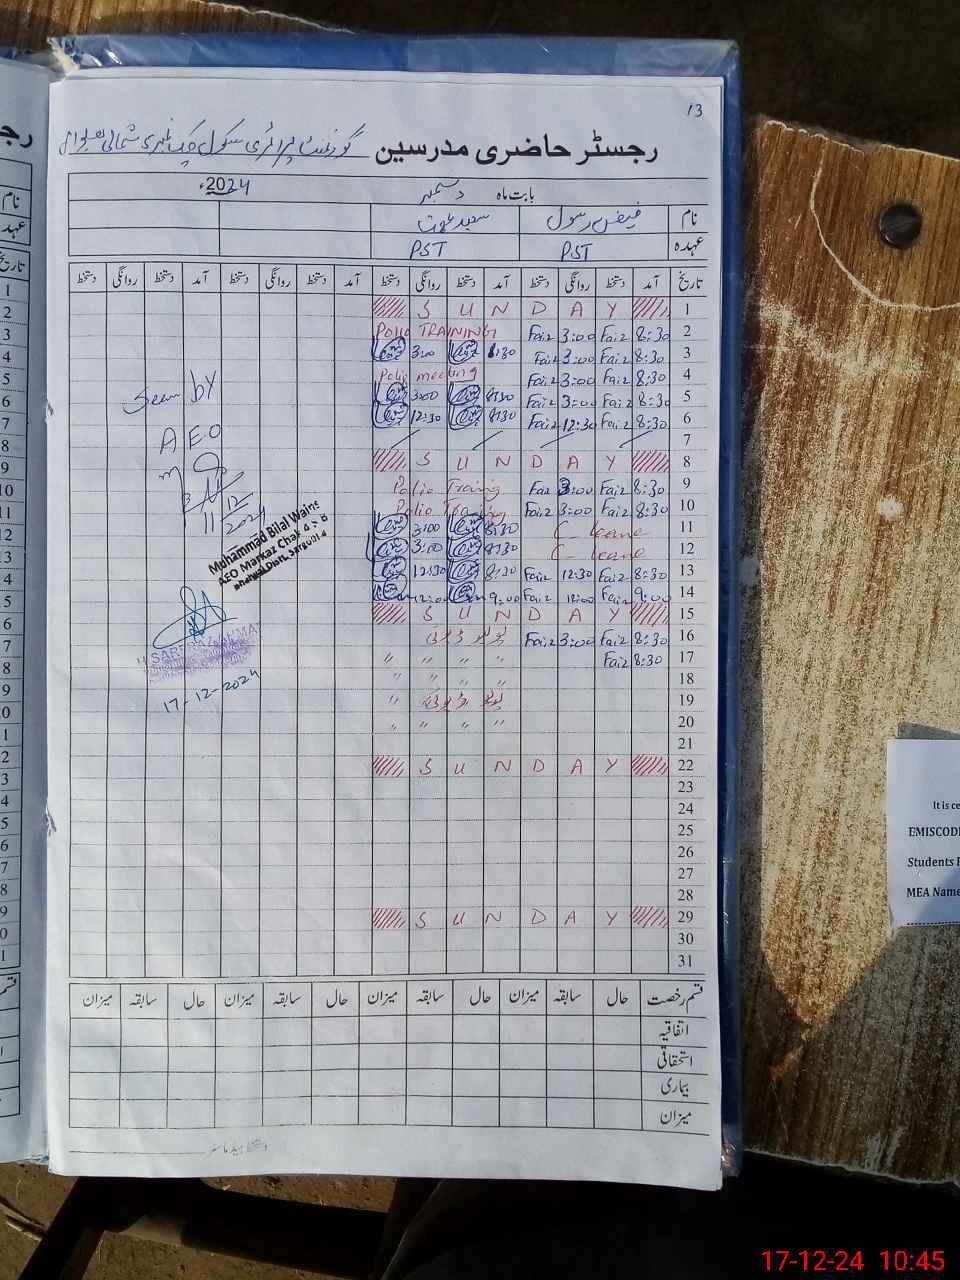 13
رجسٹر حاضری مدرسین گورنمنٹ پرائمری سکول چک نمبری شمالی بھلوال
بابت ماہ دسمبر 2024ء
نام فیض رسول
عہدہ PST PST
تاریخ آمد دستخط روانگی دستخط آمد دستخط روانگی دستخط آمد دستخط روانگی دستخط آمد دستخط روانگی دستخط
1 S U N D A Y
2 8:30 Faiz 3:00 Faiz Polio TRAINING
3 8:30 Faiz 3:00 Faiz 8:30 3:00
4 8:30 Faiz 3:00 Faiz Polio meeting
5 8:30 Faiz 3:00 Faiz 8:30 3:00
6 8:30 Faiz 12:30 Faiz 8:30 12:30
7
8 S U N D A Y
9 8:30 Faiz 3:00 Faiz Polio Traing
10 8:30 Faiz 3:00 Faiz Polio Traing
11 C-leave 8:30 3:00
12 C-leave 8:30 3:00
13 8:30 Faiz 12:30 Faiz 8:30 12:30
14 9:00 Faiz 12:00 Faiz 9:00 12:00
15 S U N D A Y
16 8:30 Faiz 3:00 Faiz پولیو ڈیوٹی
17 8:30 Faiz " " " "
18 " " " "
19 پولیو ڈیوٹی "
20 " " " "
21
22 S U N D A Y
23
24
25
26
27
28
29 S U N D A Y
30
31
Seen by
AEO
11/12/2024
Muhammad Bilal Wains
AEO Markaz Chak
Bhalwal Distt. Sargodha
17-12-2024
قسم رخصت حال سابقہ میزان حال سابقہ میزان حال سابقہ میزان حال سابقہ میزان
اتفاقیہ
استحقاقی
بیماری
میزان
دستخط ہیڈ ماسٹر
It is ce
EMISCODE
Students
MEA Name
17-12-24 10:45